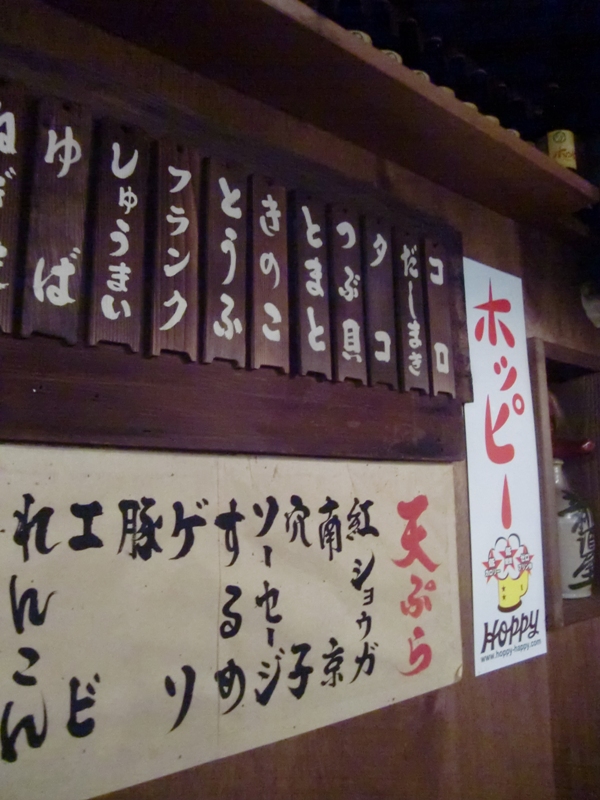 コロ
だしまき
タコ
つぶ貝
とまと
きのこ
とうふ
フランク
しゅうまい
ゆば
ホッピー
HOPPY
www.hoppy-happy.com
天ぷら
紅ショウガ
南京
穴子
ソーセージ
するめ
ゲソ
豚
エビ
れんこん